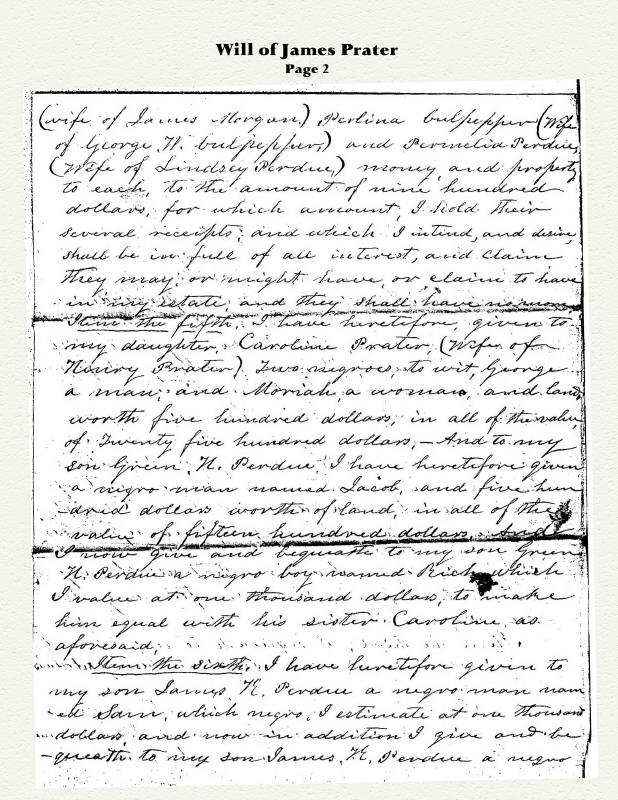 Will of James Prater
Page 2
(wife of James Morgan,) Perlina Culpepper (Wife
of George W. Culpepper,) and Permelia Perdue,
(Wife of Lindsey Perdue,) money and property
to each, to the amount of nine hundred
dollars, for which amount, I hold their
several receipts, and which I intend, and desire,
shall be in full of all interest, and claim
they may or might have, or claim to have
in my estate and they shall have no more.
Item the fifth. I have heretofore, given to
my daughter, Caroline Prater, (Wife of
Henry Prater) Two negroes, to wit, George
a man, and Moriah a woman, and land,
worth five hundred dollars, in all of the value,
of Twenty five hundred dollars,— And to my
son Green, H. Perdue I have heretofore given
a negro man named Jacob, and five hun
dred dollars worth of land, in all of the
value of fifteen hundred dollars. And
I now give and bequeath to my son Green
H. Perdue a negro boy named Rich which
I value at one thousand dollars, to make
him equal with his sister Caroline as
aforesaid,
Item the sixth. I have heretofore given to
my son James, H. Perdue a negro man nam
ed Sam, which negro, I estimate at one thousand
dollars, and now in addition I give and be
queath to my son James, H. Perdue a negro